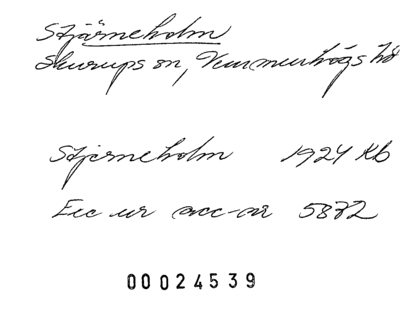 Stjärneholm
Skurups sn, Vemmenhögs hd
Stjerneholm 1924 Kb
Exc ur acc-nr 5872
00024539